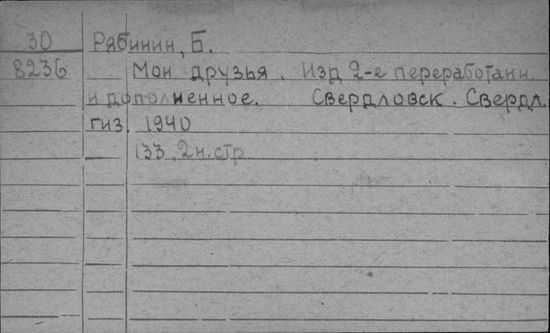 30 Рябинин, Б.
8236 Мои друзья. Изд 2-е переработанн.
и дополненное. Свердловск. Свердл.
гиз. 1940
133, 2 н. стр